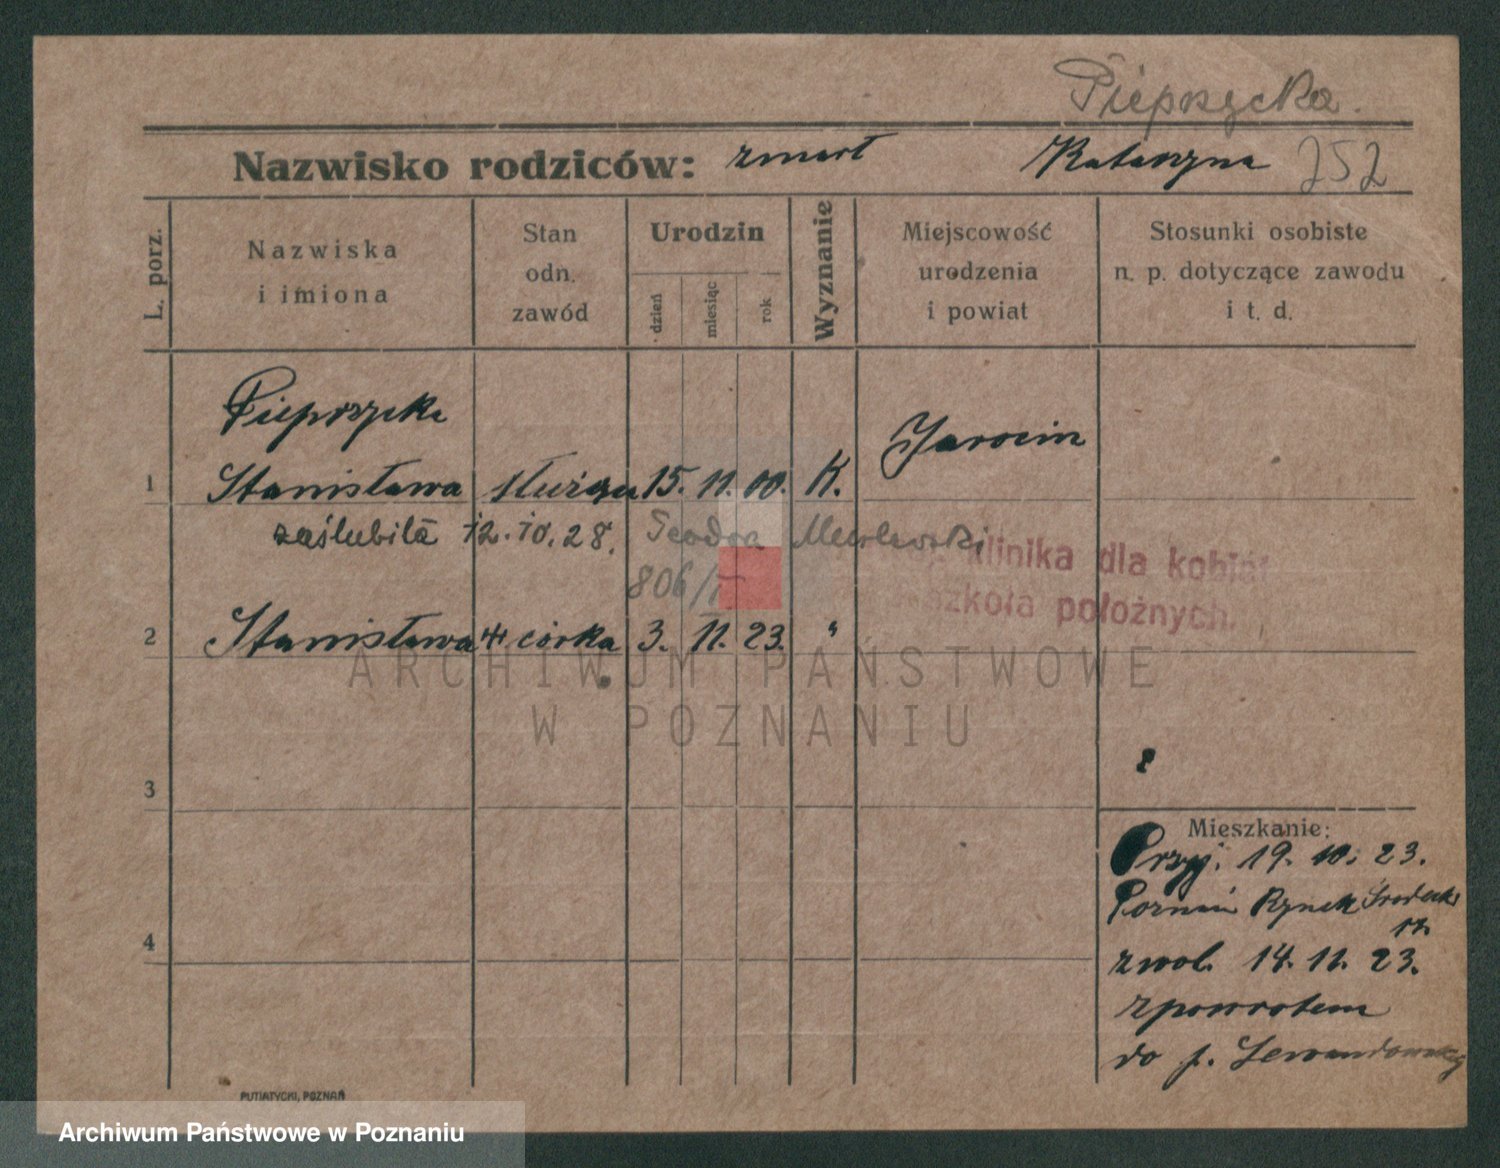 Pieprzycka.
Nazwisko rodziców: zmarł Katarzyna 252
L. porz.
Nazwiska i imiona
Stan odn. zawód
Urodzin
dzień
miesiąc
rok
Wyznanie
Miejscowość urodzenia i powiat
Stosunki osobiste n. p. dotyczące zawodu i t. d.
Pieprzycka
1 Stanisława służąca 15. 11. 00. K. Jarocin
zaślubiła 12.10.28. Teodora
806/
klinika dla kobiet
szkoła położnych.
2 Stanisława córka 3. 11. 23. "
ARCHIWUM PAŃSTWOWE
W POZNANIU
3
Mieszkanie:
Przyj. 19. 10. 23.
Poznań Rynek Śródecki
4
zwol. 14. 11. 23.
zpowrotem
do p. Lewandowskiej
PUTIATYCKI, POZNAŃ
Archiwum Państwowe w Poznaniu